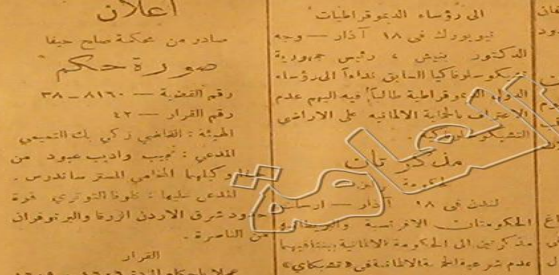 الى رؤساء الديموقراطيات
نيويورك فى ١٨ آذار — وجه
الدكتور بنيش ، رئيس جمهورية
تشيكوسلوفاكيا السابق نداءاً الى رؤساء
الدول الديموقراطية طالباً فيه اليهم عدم
الاعتراف بالحماية الالمانية على الاراضي
التشيكوسلوفاكية
مذكرتان
لندن فى ١٨ آذار — ارسلت
الحكومتان الافرنسية والبريطانية
مذكرتين الى الحكومة الالمانية بينتا فيهما
عدم شرعية الحالة الالمانية فى «تشيكاي»
اعلان
صادر من محكمة صلح حيفا
صورة حكم
رقم القضية — ٨١٦٠ — ٣٨
رقم القرار — ٤٢
الهيئة : القاضي زكي بك التميمي
المدعي : نجيب واديب عبود من
وكيلهما المحامي المستر ساندرس .
المدعى عليها : شركة
حدود شرق الاردن الزرقا
من الناصرة .
القرار